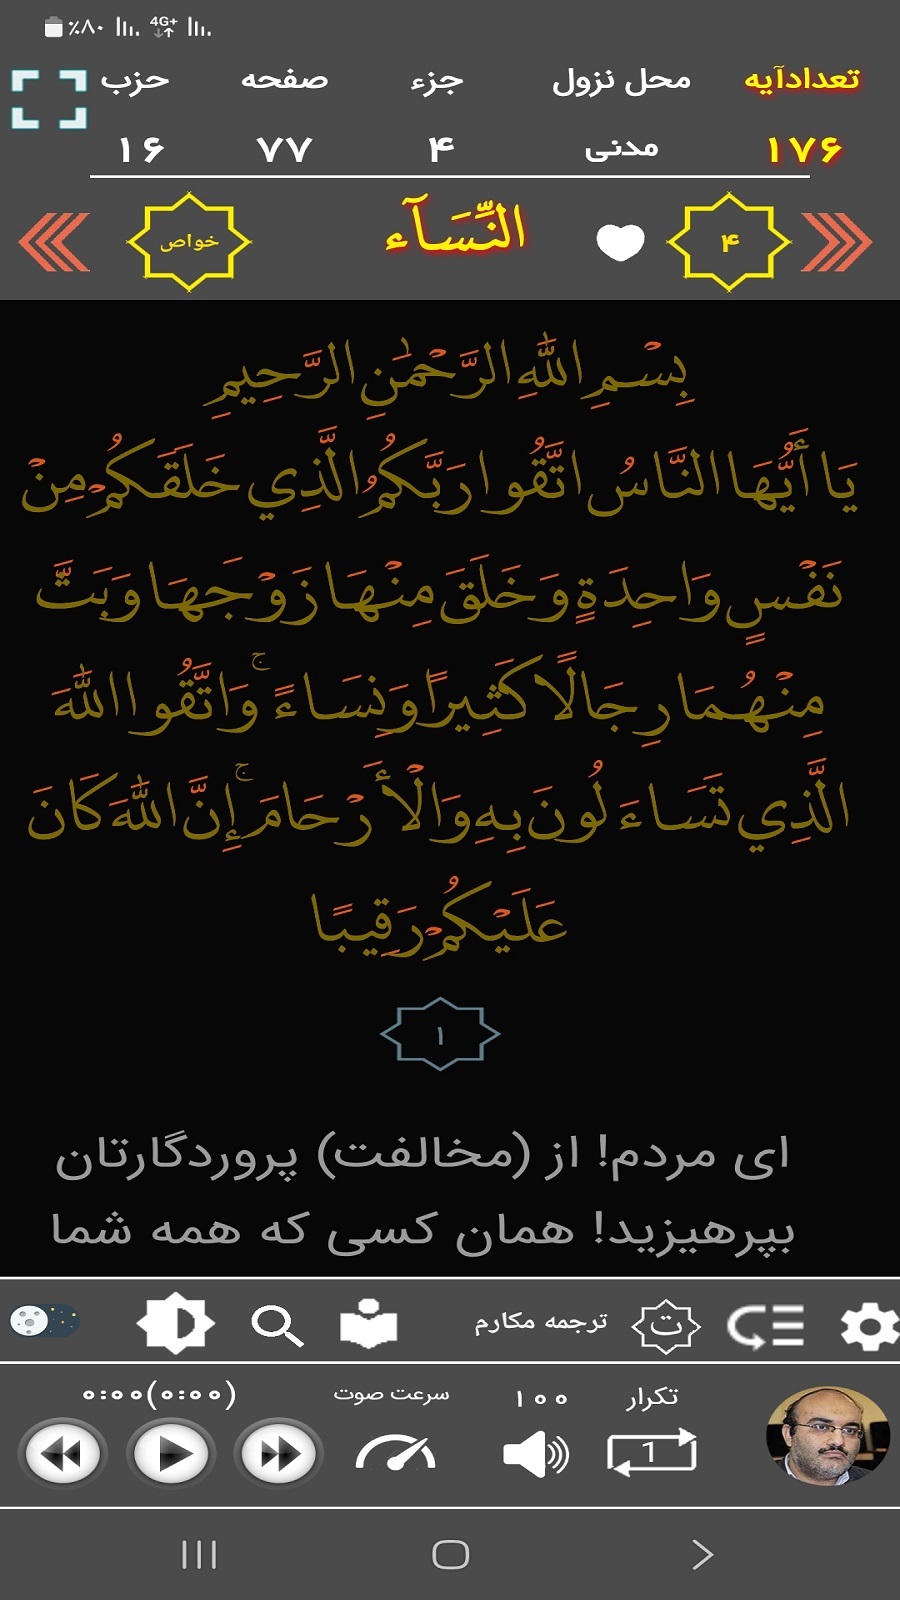 ٪۸۰ 4G+
تعدادآیه محل نزول جزء صفحه حزب
۱۷۶ مدنی ۴ ۷۷ ۱۶
۴ النِّسَآء خواص
بِسْمِ اللَّهِ الرَّحْمَٰنِ الرَّحِيمِ
يَا أَيُّهَا النَّاسُ اتَّقُوا رَبَّكُمُ الَّذِي خَلَقَكُمْ مِنْ
نَفْسٍ وَاحِدَةٍ وَخَلَقَ مِنْهَا زَوْجَهَا وَبَثَّ
مِنْهُمَا رِجَالًا كَثِيرًا وَنِسَاءً ۚ وَاتَّقُوا اللَّهَ
الَّذِي تَسَاءَلُونَ بِهِ وَالْأَرْحَامَ ۚ إِنَّ اللَّهَ كَانَ
عَلَيْكُمْ رَقِيبًا
۱
ای مردم! از (مخالفت) پروردگارتان
بپرهیزید! همان کسی که همه شما
ت ترجمه مکارم
تکرار ۱۰۰ سرعت صوت ۰:۰۰(۰:۰۰)
1